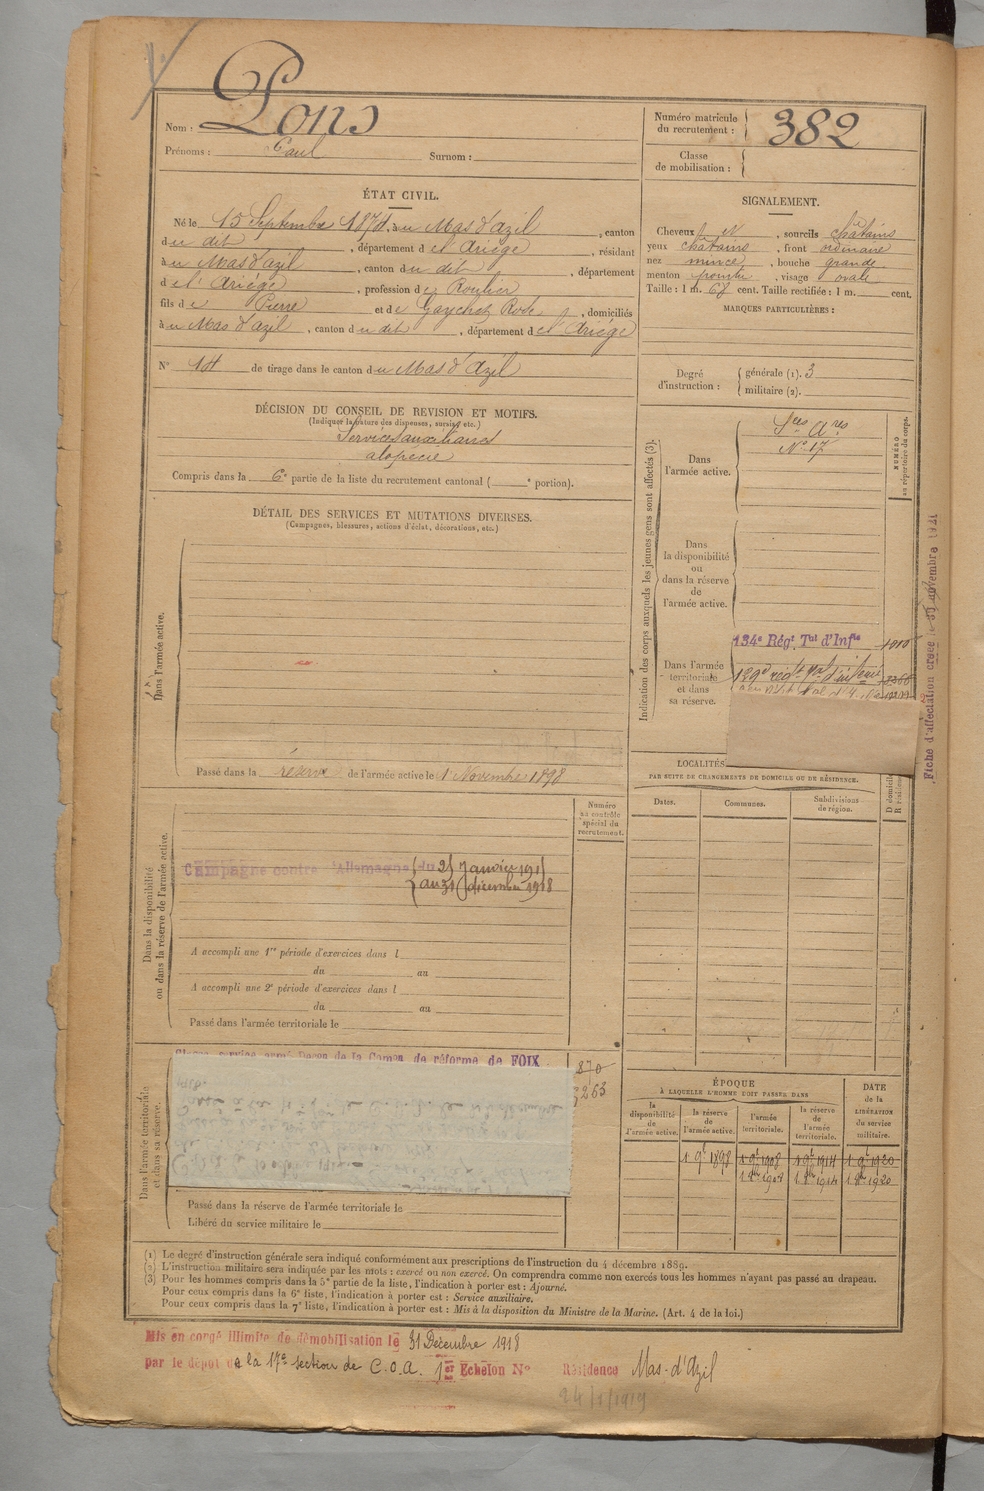 Nom : Pons
Prénoms : Paul Surnom :
Numéro matricule du recrutement : 382
Classe de mobilisation :
ÉTAT CIVIL.
Né le 15 Septembre 1874, à u Mas d'azil, canton
du dit, département de l'Ariège, résidant
à u Mas d'azil, canton du dit, département
de l'Ariège, profession de Roulier
fils de Pierre et de Rose, domiciliés
à u Mas d'azil, canton du dit, département de l'Ariège
N° 14 de tirage dans le canton du Mas d'Azil
DÉCISION DU CONSEIL DE REVISION ET MOTIFS.
(Indiquer la nature des dispenses, sursis, etc.)
Services auxiliaires
alopécie
Compris dans la 6e partie de la liste du recrutement cantonal ( e portion).
DÉTAIL DES SERVICES ET MUTATIONS DIVERSES.
(Campagnes, blessures, actions d'éclat, décorations, etc.)
Dans l'armée active.
Passé dans la réserve de l'armée active le 1 Novembre 1898
SIGNALEMENT.
Cheveux N, sourcils châtains
yeux châtains, front ordinaire
nez mince, bouche grande
menton pointu, visage ovale
Taille : 1 m. 67 cent. Taille rectifiée : 1 m. cent.
MARQUES PARTICULIÈRES :
Degré d'instruction : générale (1). 3
militaire (2).
Indication des corps auxquels les jeunes gens sont affectés (3).
NUMÉRO au répertoire du corps.
Dans l'armée active.
N° 17
Dans la disponibilité ou dans la réserve de l'armée active.
134e Régt Tal d'Infie
Dans l'armée territoriale et dans sa réserve.
Fiche d'affectation créée le novembre
LOCALITÉS
PAR SUITE DE CHANGEMENTS DE DOMICILE OU DE RÉSIDENCE.
Dates. Communes. Subdivisions de région.
D domicile R résidence
Numéro au contrôle spécial du recrutement.
Dans la disponibilité ou dans la réserve de l'armée active.
Campagne contre l'Allemagne du
au 31 décembre 1918
A accompli une 1re période d'exercices dans l
du au
A accompli une 2e période d'exercices dans l
du au
Passé dans l'armée territoriale le
Dans l'armée territoriale et dans sa réserve.
de la Comon de réforme de FOIX
870
Passé dans la réserve de l'armée territoriale le
Libéré du service militaire le
ÉPOQUE
À LAQUELLE L'HOMME DOIT PASSER DANS
la disponibilité de l'armée active.
la réserve de l'armée active.
l'armée territoriale.
la réserve de l'armée territoriale.
DATE de la LIBÉRATION du service militaire.
1 9e 1898 1 9e 1908 1 9e 1914 1 9e 1920
(1) Le degré d'instruction générale sera indiqué conformément aux prescriptions de l'instruction du 4 décembre 1889.
(2) L'instruction militaire sera indiquée par les mots : exercé ou non exercé. On comprendra comme non exercés tous les hommes n'ayant pas passé au drapeau.
(3) Pour les hommes compris dans la 5e partie de la liste, l'indication à porter est : Ajourné.
Pour ceux compris dans la 6e liste, l'indication à porter est : Service auxiliaire.
Pour ceux compris dans la 7e liste, l'indication à porter est : Mis à la disposition du Ministre de la Marine. (Art. 4 de la loi.)
Mis en congé illimité de démobilisation le 31 Décembre 1918
par le dépôt de la 17e section de C.O.A. 1er Echelon N° Résidence Mas-d'Azil
24/1/1919